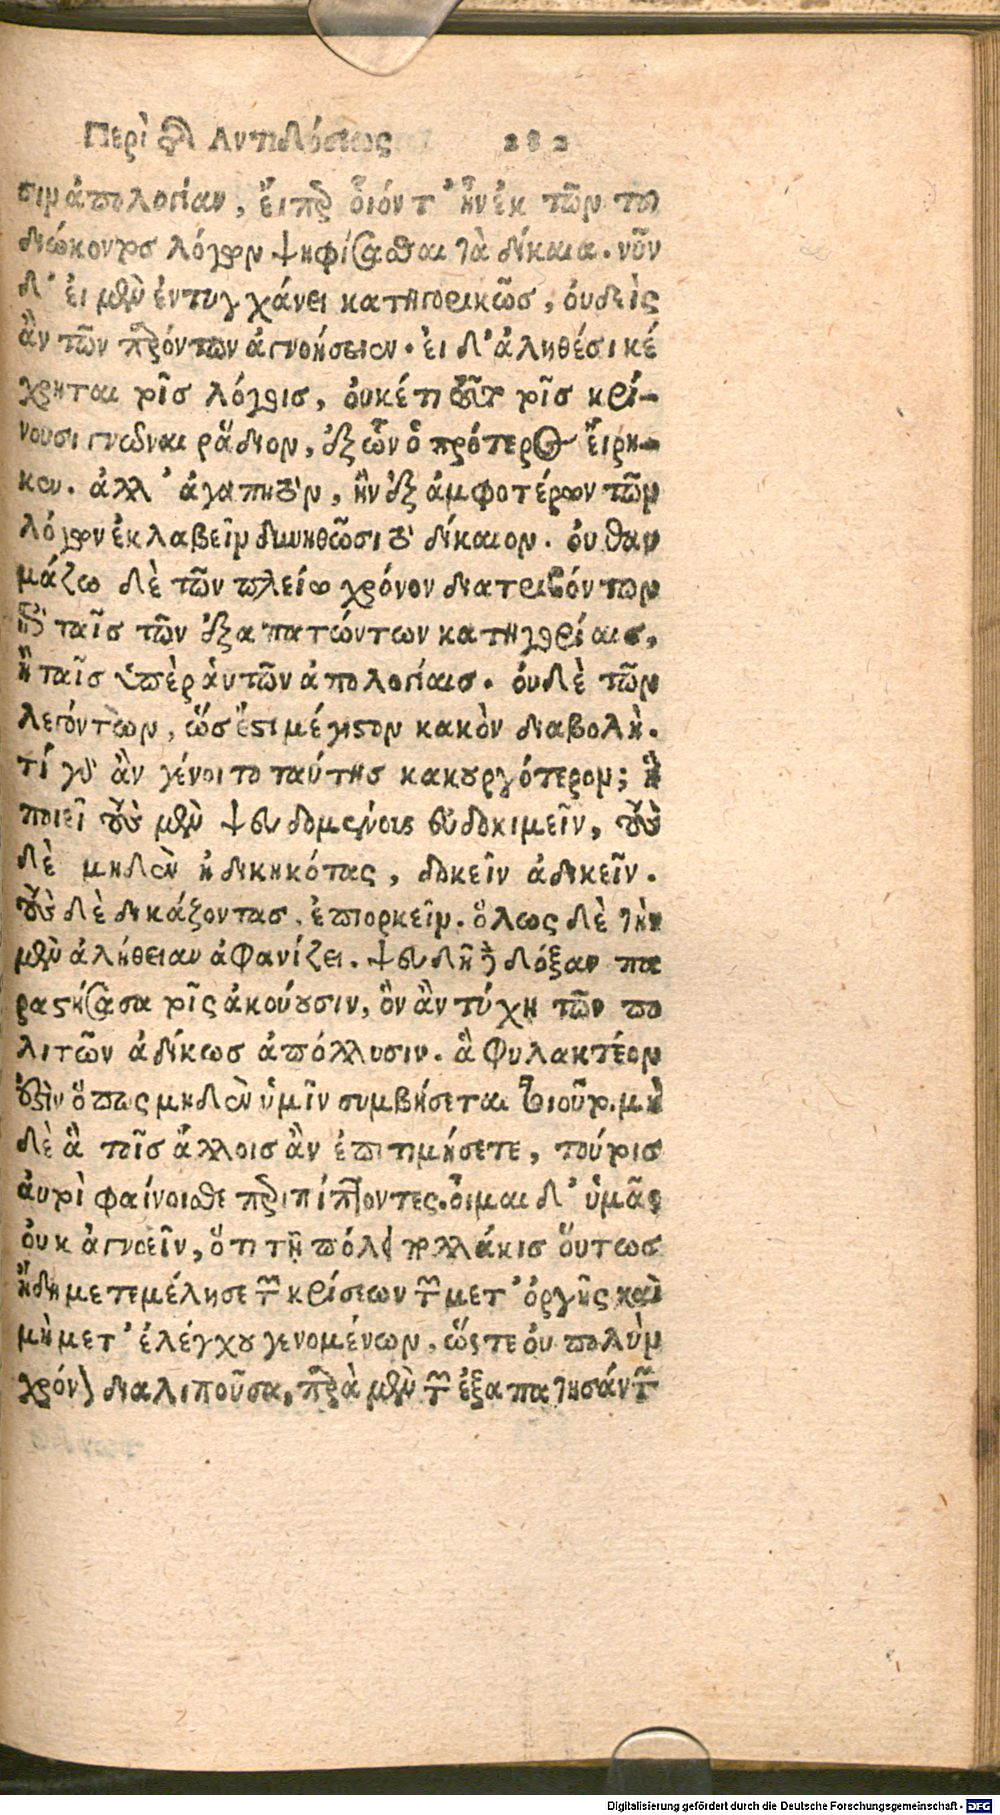 Περὶ τῆς Αντιδόσεως 282
σιν ἀπολογίαν, εἴπερ οἷόν τ᾽ ἦν ἐκ τῶν τοῦ
διώκοντος λόγων ψηφίσασθαι τὰ δίκαια. νῦν
δ᾽ εἰ μὲν ἐντυγχάνει κατηγορικῶς, ὀυδεὶς
ἂν τῶν παρόντων ἀγνοήσειεν. ἐι δ᾽ ἀληθέσι κέ
χρηται τοῖς λόγοις, ὀυκέτι τοῦτο τοῖς κρί-
νουσι γνῶναι ῥᾴδιον, ἐξ ὧν ὁ πρότερος ἔιρη-
κεν. ἀλλ᾽ ἀγαπητὸν, ἢν ἐξ ἀμφοτέρων τῶν
λόγων ἐκλαβεῖν δυνηθῶσι τὸ δίκαιον. ὀυ θαυ
μάζω δὲ τῶν πλείω χρόνον διατριβόντων
ἐπὶ ταῖς τῶν ἐξαπατώντων κατηγορίαις,
ἢ ταῖς ὑπὲρ ἁυτῶν ἀπολογίαις. ὀυδὲ τῶν
λεγόντων, ὥς ἔστι μέγιστον κακὸν διαβολή.
τί γὰρ ἂν γένοιτο ταύτης κακουργότερον; ἣ
ποιεῖ τοὺς μὲν ψευδομένους εὐδοκιμεῖν, τοὺς
δὲ μηδὲν ἠδικηκότας, δοκεῖν ἀδικεῖν.
τοὺς δὲ δικάζοντας, ἐπιορκεῖν. ὅλως δὲ τὴν
μὲν ἀλήθειαν ἀφανίζει. ψευδῆ δὲ δόξαν πα
ραστήσασα τοῖς ἀκούουσιν, ὃν ἂν τύχη τῶν πο
λιτῶν ἀδίκως ἀπόλλυσιν. ἃ φυλακτέον
ἐστὶν ὅπως μηδὲν ὑμῖν συμβήσεται τοιοῦτον. μη
δὲ ἃ τοῖς ἄλλοις ἂν ἐπιτιμήσετε, τούτοις
ἀυτοὶ φαίνοισθε περιπίπτοντες. ὀιμαι δ᾽ ὑμᾶς
ὀυκ ἀγνοεῖν, ὅτι τῇ πόλει πολλάκις ὅυτως
ἤδη μετεμέλησε τῶν κρίσεων τῶν μετ᾽ ὀργῆς καὶ
μὴ μετ᾽ ἐλέγχου γενομένων, ὥστε ὀυ πολὺν
χρόνον διαλιποῦσα, παρὰ μὲν τῶν ἐξαπατησάντων
Digitalisierung gefördert durch die Deutsche Forschungsgemeinschaft - DFG